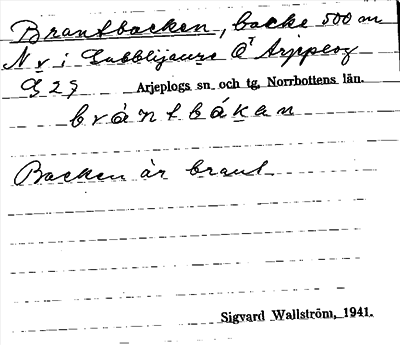 Brantbacken, backe 500 m
N v i Gabblijaure Öᵗ Arjeplog
G 2 g
Arjeplogs sn och tg, Norrbottens län.
b r à n t b á k a n
Backen är brant
Sigvard Wallström, 1941.